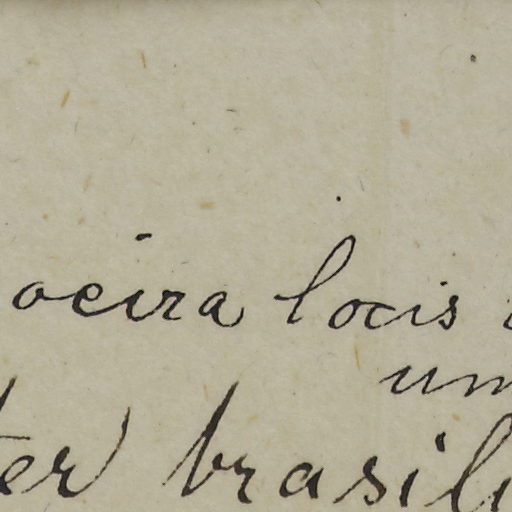 oeira locis
um
ter brasili